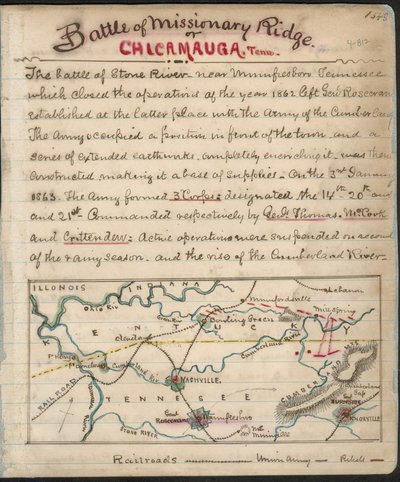 1543
4-812
Battle of Missionary Ridge.
or
CHICAMAUGA. Tenn.
The Battle of Stone River near Murinfresboro Tennessee
which closed the operations of the year 1862 left Genl Rosecran
established at the latter place with the Army of the Cumberland
The Army occupied a position in front of the town and a
series of extended earthworks, completely encircling it, was then
constructed making it a base of supplies. On the 3rd January
1863. The Army formed 3 Corps: designated the 14th 20th and
and 21st Commanded respectively by Genls Thomas. McCook
and Crittenden: Active operations were suspended on account
of the rainy season. and the rise of the Cumberland River.
ILLINOIS
INDIANA
Lebanon
Ohio Riv
Munifordsville
Mill Spring
KENTUCKY
Bowling Green
Cumberland Riv
Cumberland Riv
NASHVILLE.
CUMBERLAND MTS
Cumberland
Gap
Genl
BURNSIDE
KNOXVILLE
TENNESSEE
RAIL ROAD
Genl
Rosecrans
Murinfresboro
STONE RIVER
Railroads
Union Army
Rebels